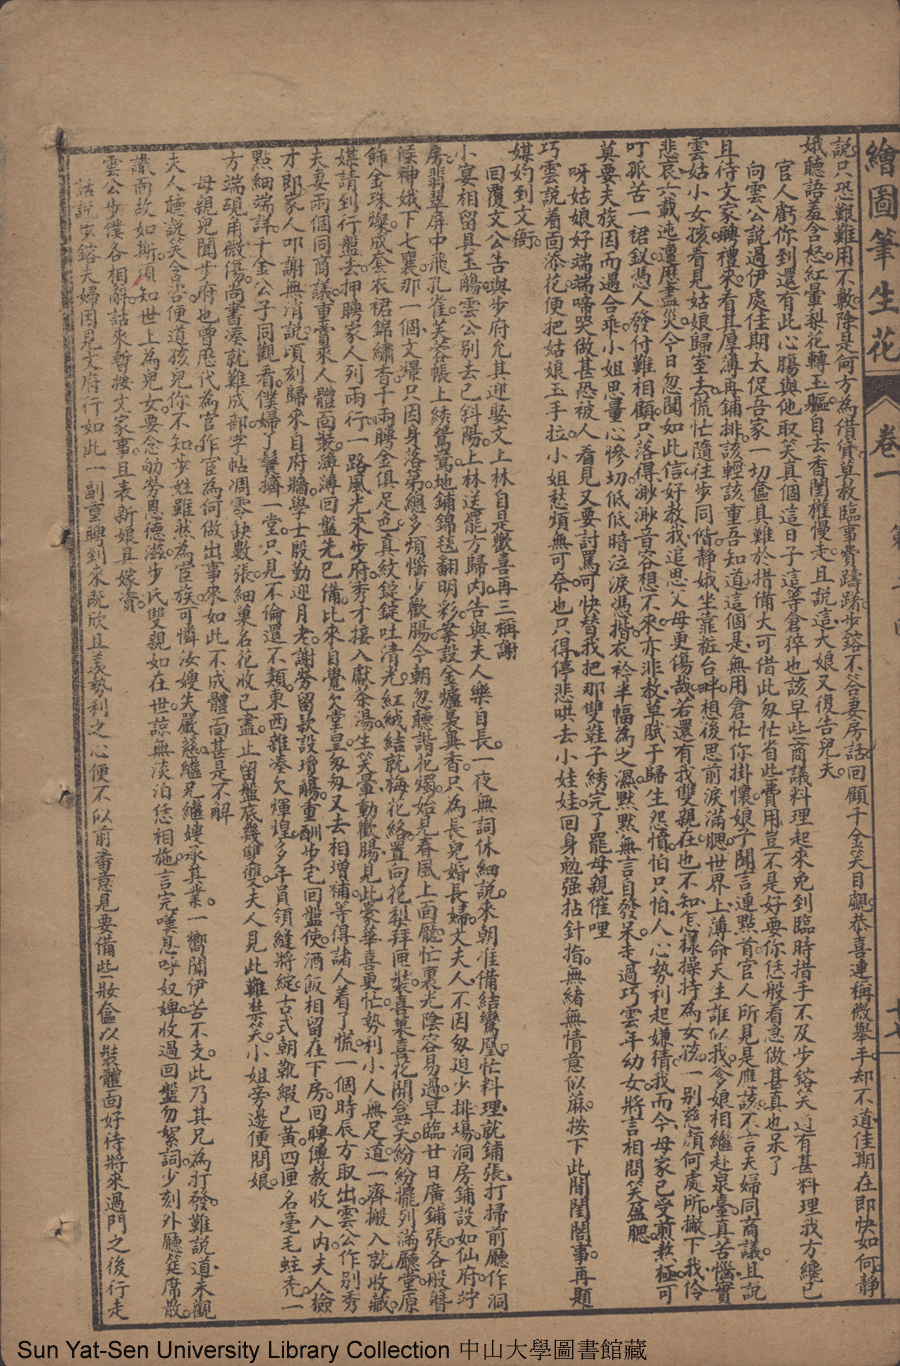 繪圖筆生花 卷一 第二回 十七
說只恐艱難用不敷除是何方為借貸莫教臨事費躊躇步鎔不答妻房話回顧千金笑目覷恭喜連稱微舉手却不道佳期在即快如何靜
娥聽語羞含怒紅暈梨花轉玉軀自去香閨權慢走且說這大娘又復告兒夫
官人虧你到還有此心腸與他取笑真個這日子這等倉猝也該早些商議料理起來免到臨時措手不及步鎔笑道有甚料理我方纔已
向雲公說過伊處佳期太促吾家一切奩具難於措備大可借此匆忙省些費用豈不是好要你恁般着急做甚真也呆了
且待文家聘禮來看其厚薄再鋪排該輕該重吾知道這個是無用倉忙你掛懷娘子聞言連點首官人所見是應該不言夫婦同商議且說
雲姑小女孩看見姑娘歸室去慌忙隨往步同偕靜娥坐靠粧台畔想後思前淚滿腮世界上薄命天生誰似我爹娘相繼赴泉臺真苦惱實
悲哀六載迍邅歷盡災今日忽聞如此信好教我追思父母更傷哉若還有我雙親在也不知怎樣操持為女孩一別慈顏何處所撇下我伶
仃孤苦一裙釵憑人發付難相顧只落得渺渺音容想不來亦非教草賦于歸生怨憤怕只怕人心勢利起嫌猜我而今母家已受煎熬極可
莫要夫族因而遇合乖小姐思量心慘切低低暗泣淚馮揩衣衿半幅為之濕默默無言自發呆走過巧雲年幼女將言相問笑盈腮
呀姑娘好端端啼哭做甚恐被人看見又要討罵可快替我把那雙鞋子綉完了罷母親催哩
巧雲說着面添花便把姑娘玉手拉小姐愁煩無可奈也只得停悲哄去小娃娃回身勉强拈針指無緒無情意似蔴按下此間閨閣事再題
媒妁到文衙
回覆文公告與步府允其迎娶文上林自是懽喜再三稱謝
小宴相留具玉觴雲公別去已斜陽上林送罷方歸內告與夫人樂自長一夜無詞休細說來朝准備結鸞凰忙料理就鋪張打掃前廳作洞
房翡翠屏中飛孔雀芙蓉帳上綉鴛鴦地鋪錦毯翻明彩案設金爐裊異香只為長兒婚長婦丈夫人不因匆迫少排場洞房鋪設如仙府竚
候神娥下七襄那一個文爆只因身落第總多煩惱少歡腸今朝忽聽諧花燭始見春風上面龐忙裏光陰容易過早臨廿日廣鋪張各般簪
飾金珠燦成套衣裙錦繡香千兩聘金俱足色真紋錠錠吐清光紅絨結就梅花絡置向花梨拜匣裝喜菓喜花開盒笑紛紛擺列滿廳堂原
媒請到行盤去押聘家人列兩行一路風光來步府秀才接入獻茶湯生笑暈動歡腸見此豪華喜更忙勢利小人無足道一齊搬入就收藏
夫妻兩個同商議重賞來人體面裝薄薄回盤先已備比來自覺欠堂皇匆匆又去相增補等得諸人着了慌一個時辰方取出雲公作別秀
才郎家人叩謝無消說頃刻歸來自府牆學士殷勤迎月老謝勞留飲設瓊觴重酬步宅回盤使酒飯相留在下房回聘傳教收入內夫人撿
點細端詳千金公子同觀看僕婦丫鬟擠一堂只見不倫還不類東西雜凑欠煇煌多年員領縫將綻古式朝靴緞已黃四匣名毫毛蛀禿一
方端硯用微傷尚書凑就難成部字帖凋零缺數張細菓名花收已盡止留盤底幾雙雙夫人見此難禁笑小姐旁邊便問娘
母親兒聞步府也曾歷代為官作宦為何做出事來如此不成體面甚是不解
夫人聽說笑含唇便道孩兒你不知步姓雖然為宦族可憐汝嫂失嚴慈繼兄繼嫂承其業一嚮聞伊苦不支此乃其兄為打發難說道未觀
識面故如斯須知世上為兒女要念劬勞恩德滋步氏雙親如在世諒無淡泊恁相施言完嘆息呼奴婢收過回盤勿絮詞少刻外廳筵席散
雲公步僕各相辭話來暫按文家事且表新娘具嫁資
話說步鎔夫婦因見文府行如此一副重聘到來既欣且羨勢利之心便不似前番意見要備些粧奩以裝體面好待將來過門之後行走
Sun Yat-Sen University Library Collection 中山大學圖書館藏